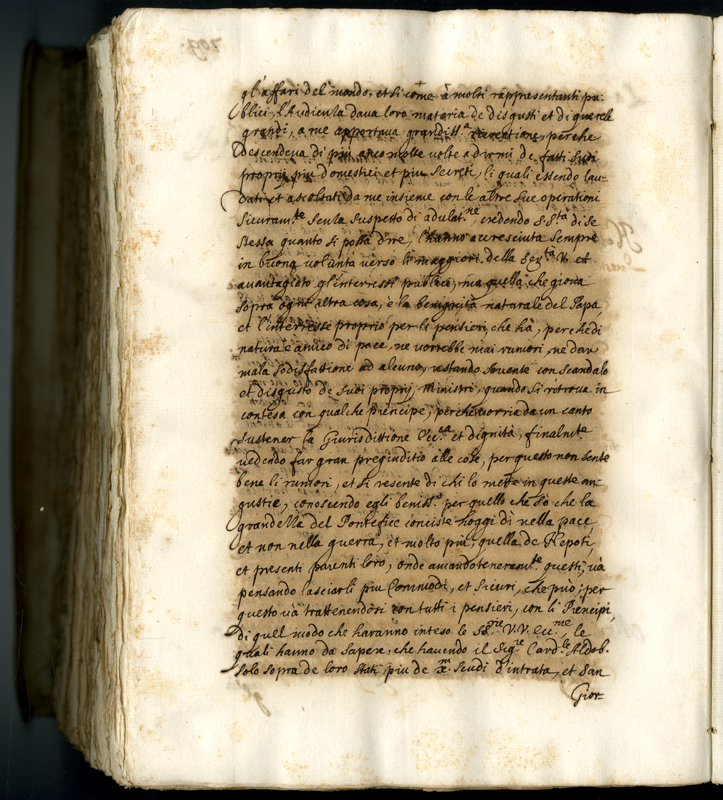 gl'affari del mondo, et si come à molti rappresentanti pu-
blici, l'Audienza dava loro materia de disgusti et di querele
grandi, a me apportava grandiss.a, perche
descendeva di più anco molte volte a dirmi de fatti suoi
proprij più domestici et piu secreti, li quali essendo lau-
dati et ascoltati da me insieme con le altre sue operationi
sicuram.te senza suspetto di adulat.ne, credendo S. S.tà di se
stessa quanto si possa dire, l'hanno accresciuta sempre
in buona volunta verso li maggiori della Ser.tà V. et
avantagiato gl'interessi publici, ma quello che giova
sopra ogni altra cosa, è la benignità naturale del Papa,
et l'interesse proprio per li pensieri, che hà, perche di
natura è amico di pace, ne vorrebbe mai rumori, ne dar
mala sodisfattione ad alcuno, restando sovente con scandalo
et disgusto de suoi proprij Ministri, quando si ritrova in
contesa con qualche Prencipe, perche vorria da un canto
sustener la Giurisdittione Ecc.ca et dignità, finalm.te
vedendo far gran pregiuditio alle cose, per questo non sente
bene li rumori, et si resente di chi lo mette in queste an-
gustie, conoscendo egli beniss.o per quello che sò che la
grandezza del Pontefice consiste hoggi di nella pace,
et non nella guerra, et molto più, quella de Nepoti,
et presenti parenti loro, onde amando teneram.te questi, và
pensando lasciarli piu Commodi, et sicuri, che può; per
questo và trattenendosi con tutti i pensieri, con li Prencipi,
di quel modo che haranno inteso le SS.rie V.V. Ecc.me, le
quali hanno da sapere, che havendo il Sig.re Card.le Aldob.
solo sopra de loro stati più de x.m scudi d'intrata, et San
Gior-